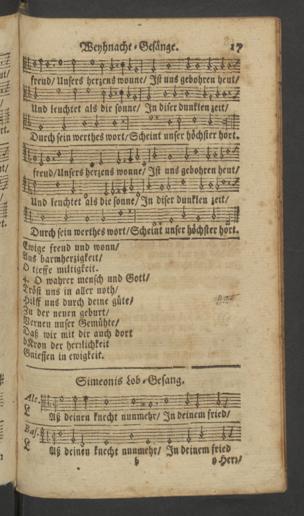 Weyhnacht-Gesänge. 17
freud/ Unsers herzens wonne/ Ist uns gebohren heut/
Und leuchtet als die sonne/ In diser dunklen zeit/
Durch sein werthes wort/ Scheint unser höchster hort.
freud/ Unsers herzens wonne/ Ist uns gebohren heut/
Und leuchtet als die sonne/ In diser dunklen zeit/
Durch sein werthes wort/ Scheint unser höchster hort.
Ewige freud und wonn/
Aus barmherzigkeit/
O tieffe miltigkeit.
4. O wahrer mensch und Gott/
Tröst uns in aller noth/
Hilff uns durch deine güte/
Zu der neuen geburt/
Vernen unser Gemühte/
Daß wir mit dir auch dort
Kron der herrlichkeit
Gniessen in ewigkeit.
Simeonis Lob-Gesang.
Alt.
L Aß deinen knecht nunmehr/ In deinem fried/
Bas.
L Aß deinen knecht nunmehr/ In deinem fried
b o Herr/